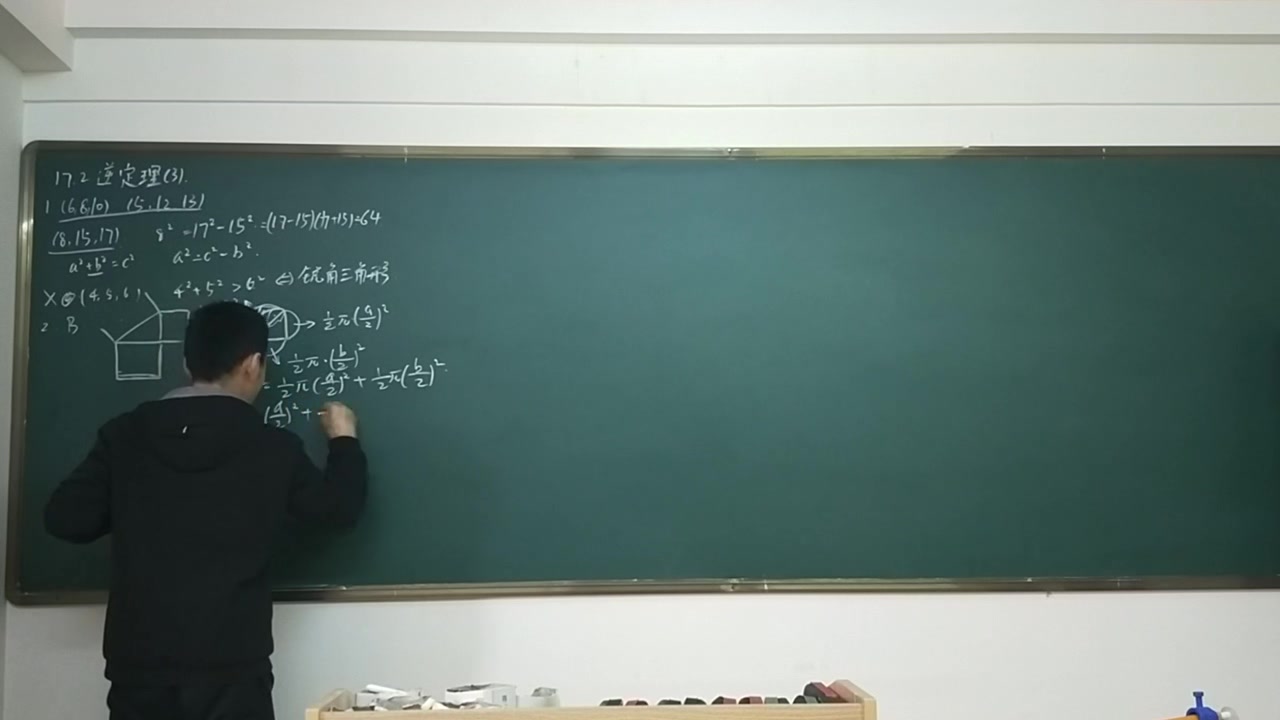 17.2 逆定理(3).
1 (6,8,10) (5,12,13)
(8,15,17) 8² =17²-15² =(17-15)(17+15)=64
a²+b²=c² a²=c²-b².
X (4,5,6) 4²+5²>6² ⇔ 锐角三角形
2. B → ½π(a/2)²
½π·(b/2)²
= ½π(a/2)² + ½π(b/2)².
(a/2)² +